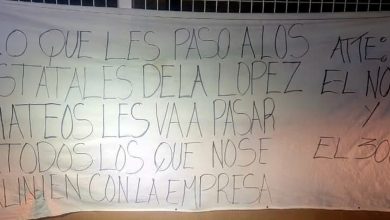 LO QUE LES PASO ALOS
STATALES DELA LOPEZ
MATEOS LES VAA PASAR
TODOS LOS QUE NOSE
ALINIEN CONLA EMPRESA
ATTE:
EL NO
Y
EL 30